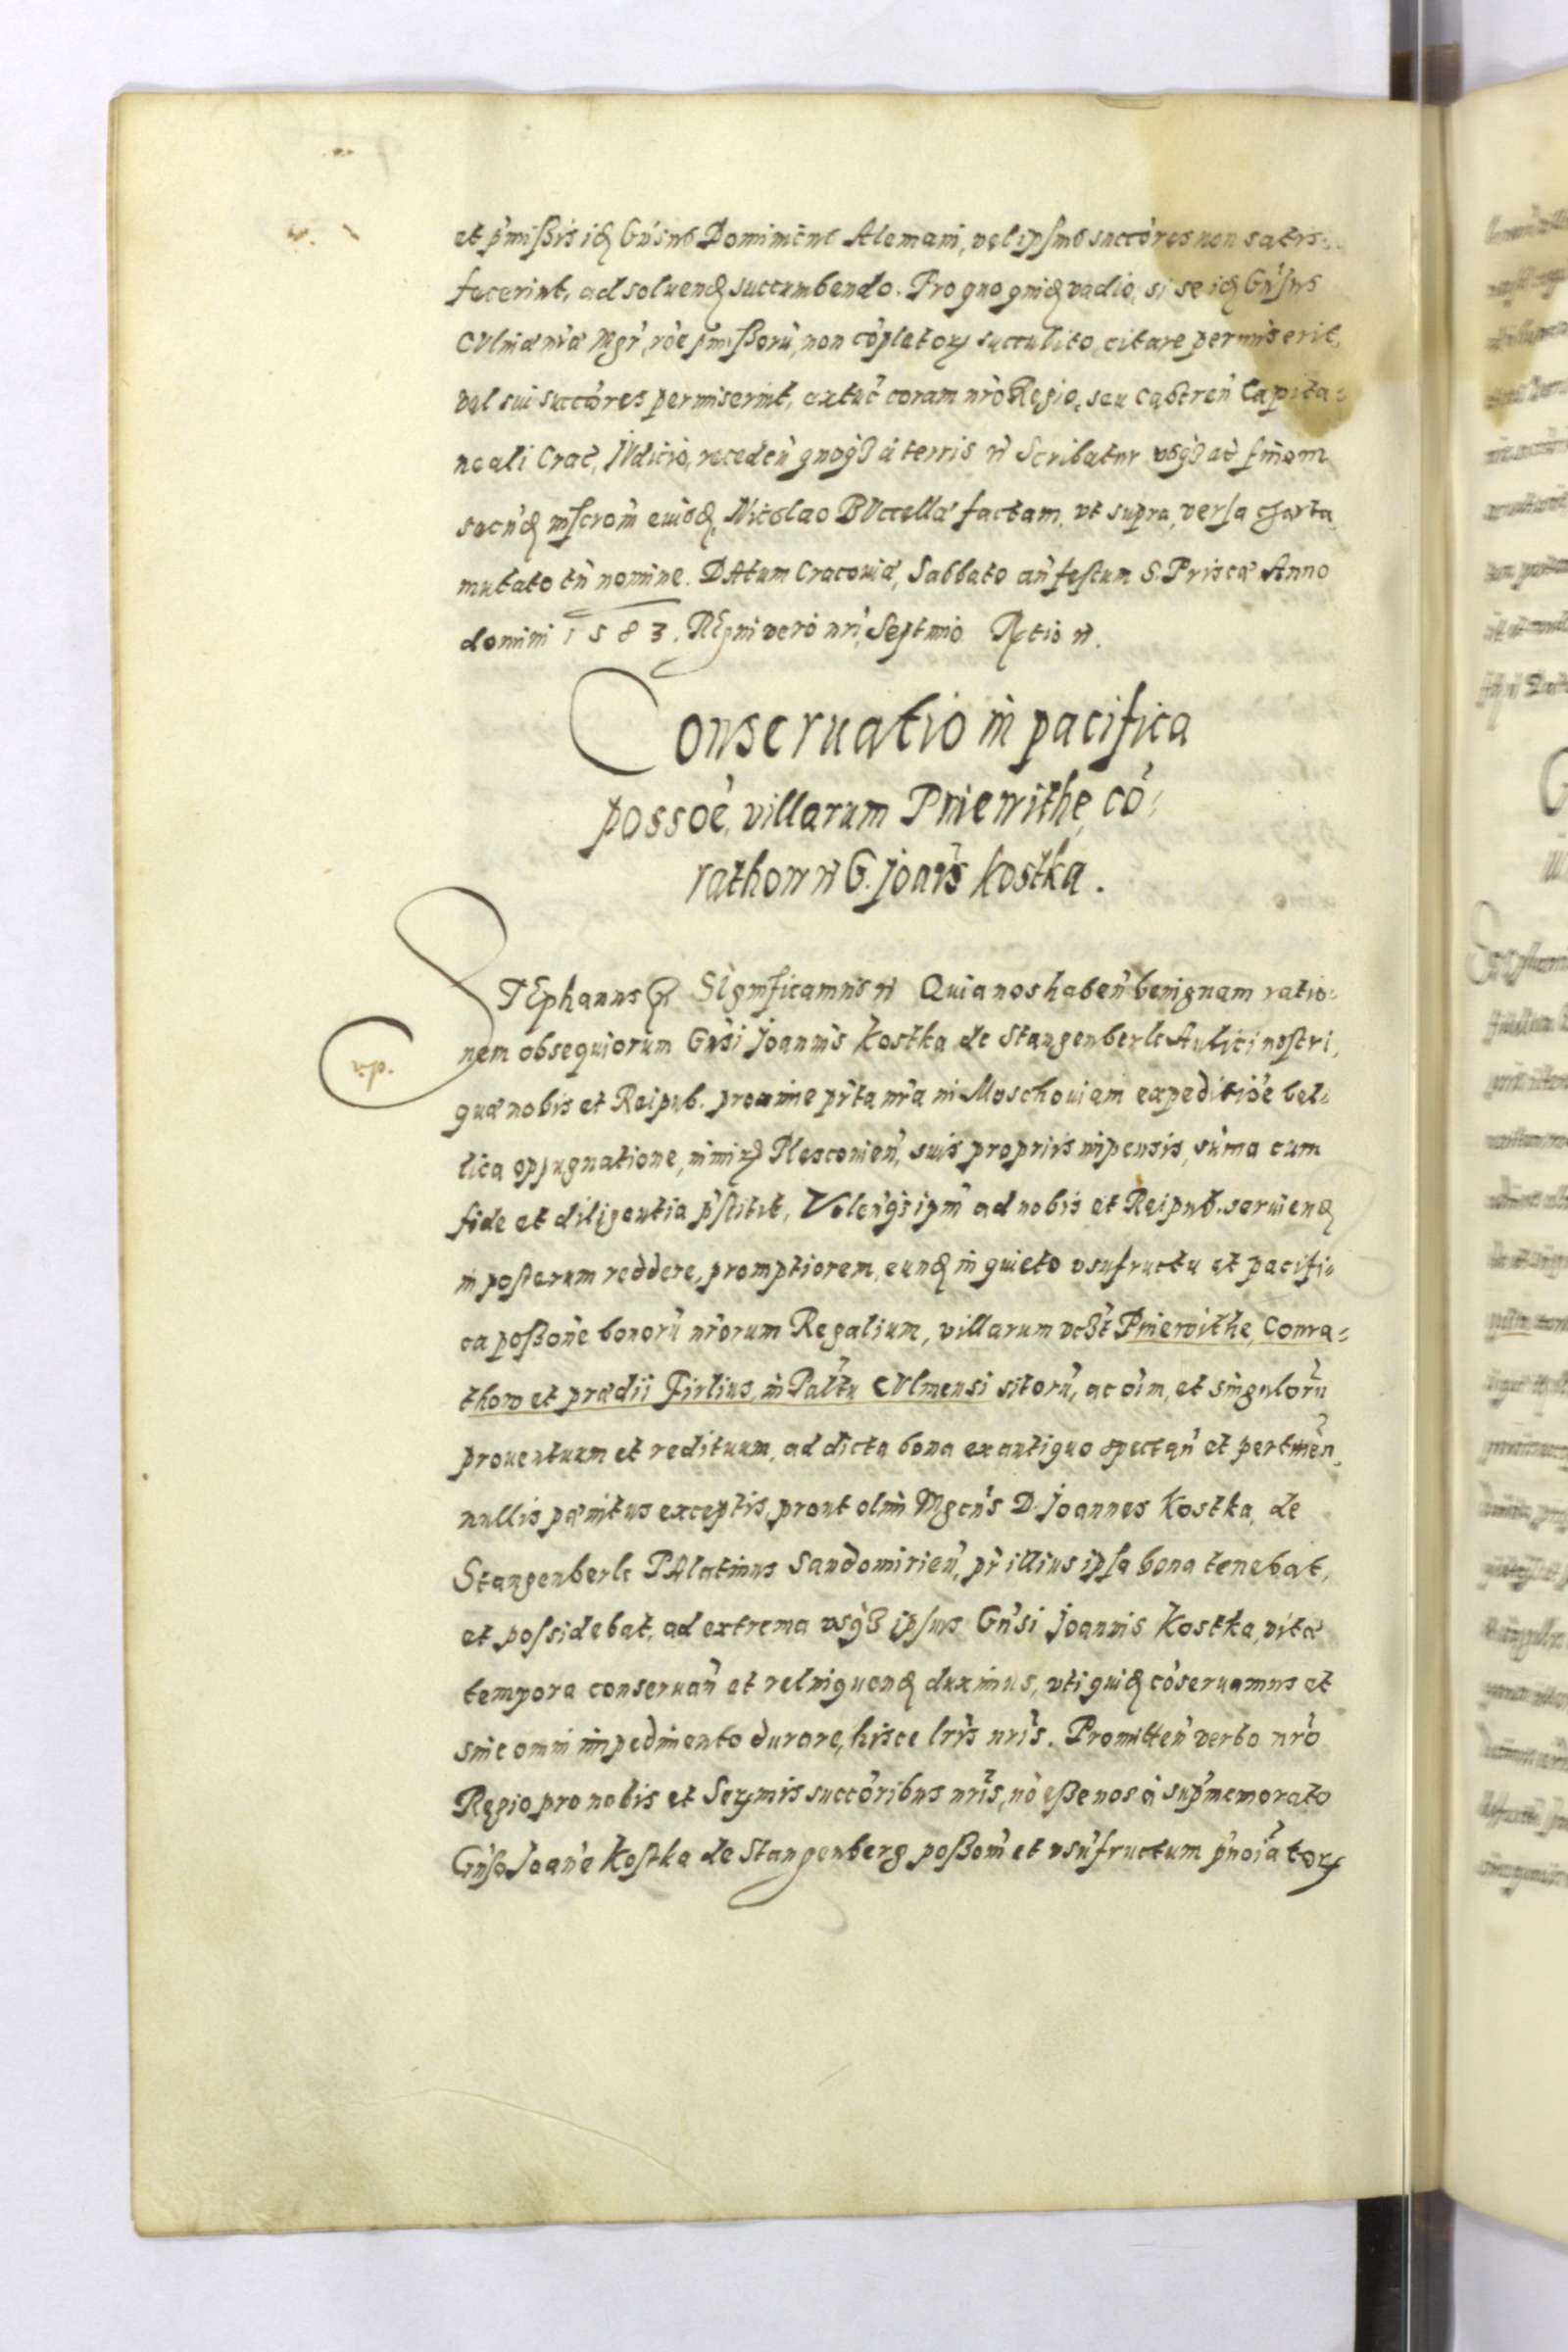 et p̓mißis idẽ Gn̓sus Dominicus Alemani, vel ipsius succōres non satis-
fecerint, ad soluendũ succumbendo. Pro quo quidẽ vadio, si se idẽ Gn̓sus
Culinæ nr̃æ Mgr̃, rõe p̓mißorũ, non cõpletorũ succubito, citare permiserit,
vel sui succõres permiserint, extũc coram nr̃o Regio, seu Castreñ Capita-
neali Crac̃, Iudicio, recedeñ quoqȝ à terris ñ Scribatur vsqȝ ad fin̓em
secundũ inscrom̃ eiusdẽ, Nicolao Buccella factam, vt supra, versa charta,
mutato tñ nomine. DAtum Cracouiæ, Sabbato añ festum S. Priscæ Anno
domini 1583. REgni vero nri, Septimo Rtio ñ.
Conseruatio in pacifica
possoẽ, villarum Pniewithe, cõ-
rathow ñ G. joañis kostka.
STEphanus & SIgnificamus ñ Quia nos habeñ benignam ratio-
nem obsequiorum Gn̓si joannis Kostka de Stangenberk Aulici nostri,
quæ nobis et Reipub. proxime p̓rita nr̃a in Moschouiam expeditiõe bel-
lica oppugnatione, nimirũ Plesconieñ, suis proprijs impensis, sũma cum
fide et diligentia p̓stitit, Volenqȝ ipm̃ ad nobis et Reipub. seruiendũ
in posterum reddere, promptiorem, eundẽ in quieto vsufructu et pacifi-
ca poßone bonorũ nr̃orum Regalium, villarum vcȝt Pniewithe, Conra-
thow et prædij Firlius, in Paltũ CUlmensi sitorũ, ac oim̃, et singulorũ
prouentuum et redituum, ad dicta bona ex antiquo spectañ et pertineñ,
nullis pænitus exceptis, prout olim Mgcñs D. joannes Kostka, de
Stangenberk PAlatinus Sandomirieñ, pr̃ illius ipsa bona tenebat,
et possidebat, ad extrema vsqȝ ipsius Gn̓si joannis Kostka, vitæ
tempora conseruañ et relinquendũ duximus, vti quidẽ cõseruamus et
sine omni impedimento durare, hisce lrīs nrīs. Promitteñ verbo nr̃o
Regio pro nobis et Sermis succõribus nrīs, nõ eße nos à sup̓memorato
Gn̓so Joañe Kostka de Stangenberg poßom̃ et vsũfructum p̓noiatorũ